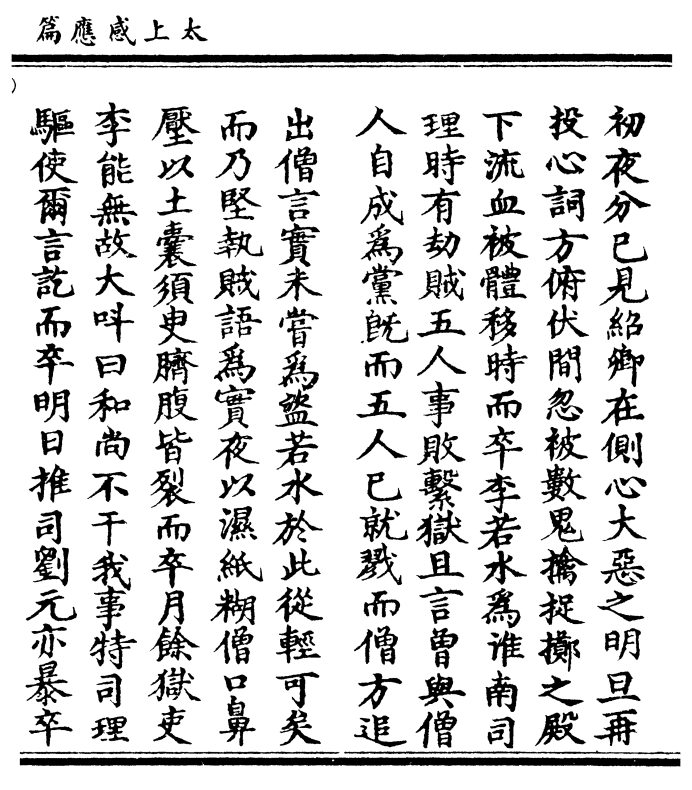 太上感應篇
初夜分已見紹卿在側心大惡之明旦再
投心詞方俯伏間忽被數鬼擒捉擲之殿
下流血被體移時而卒李若水爲淮南司
理時有劫賊五人事敗繫獄且言曾與僧
人自成爲黨旣而五人已就戮而僧方追
出僧言實未嘗爲盜若水於此從輕可矣
而乃堅執賊語爲實夜以濕紙糊僧口鼻
壓以土囊須臾臍腹皆裂而卒月餘獄吏
李能無故大呌曰和尚不干我事特司理
驅使爾言訖而卒明日推司劉元亦暴卒